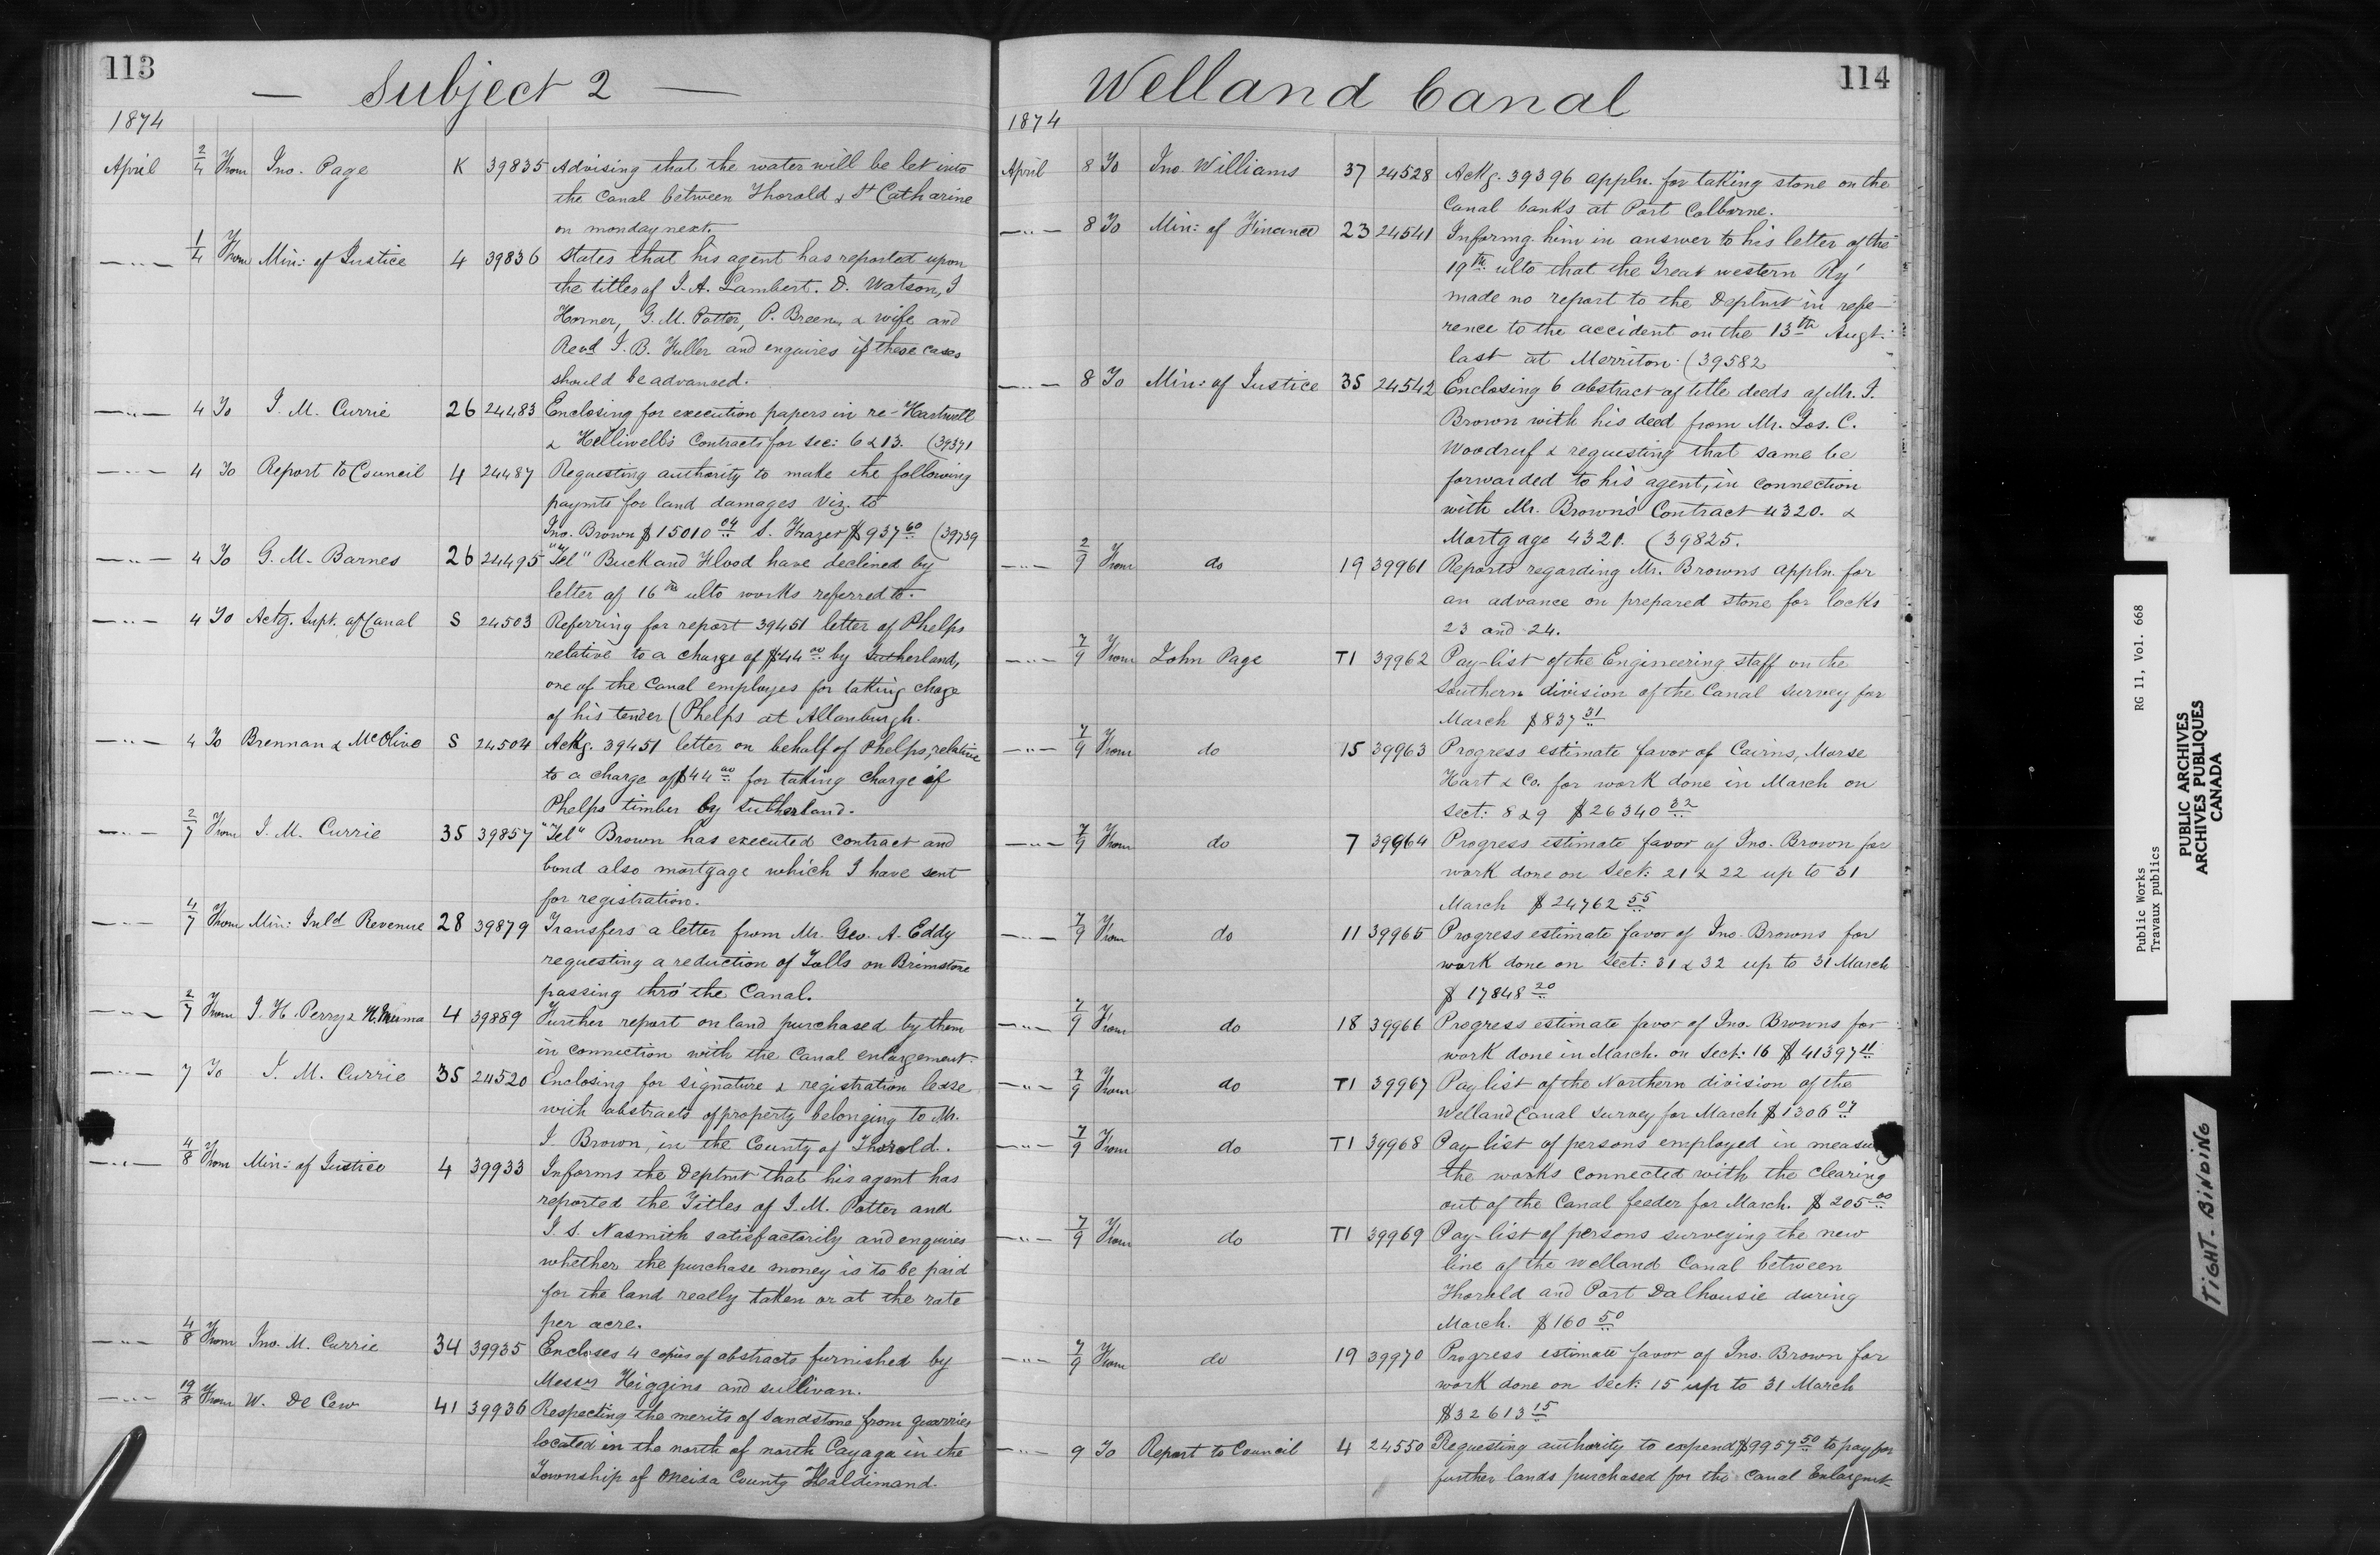 113
— Subject 2 —
1874
April 2/4 From Jno. Page K 39835 Advising that the water will be let into
the Canal between Thorold & St Catharine
on monday next.
—„— 1/4 From Min: of Justice 4 39836 States that his agent has reported upon
the titles of J. A. Lambert. D. Watson, J
Horner, G. M. Potter, P. Breen, & wife and
Revd J. B. Fuller and enquires if these cases
should be advanced.
—„— 4 To J. M. Currie 26 24483 Enclosing for execution papers in re- Hartwell
& Helliwell's Contracts for sec: 6 & 13. (39371
—„— 4 To Report to Council 4 24487 Requesting authority to make the following
paymts for land damages viz. to
Jno. Brown $15010 04 S. Frazer $937 60 (39739
—„— 4 To G. M. Barnes 26 24495 "Tel" Buck and Flood have declined by
letter of 16th ulto works referred to.
—„— 4 To Actg. Supt. of Canal S 24503 Referring for report 39451 letter of Phelps
relative to a charge of $44 00 by Sutherland,
one of the Canal employes for taking chage
of his tender (Phelps at Allanburgh.
—„— 4 To Brennan & McOlive S 24504 Ackg. 39451 letter on behalf of Phelps, relative
to a charge of $44 00 for taking charge of
Phelps timber by Sutherland.
—„— 2/7 From J. M. Currie 35 39857 "Tel" Brown has executed contract and
bond also mortgage which I have sent
for registration.
—„— 4/7 From Min: Inld Revenue 28 39879 Transfers a letter from Mr. Geo. A. Eddy
requesting a reduction of Tolls on Brimstone
passing thro' the Canal.
—„— 2/7 From J. H. Perry & 4 39889 Further report on land purchased by them
in connection with the Canal enlargement.
—„— 7 To J. M. Currie 35 24520 Enclosing for signature & registration lease
with abstracts of property belonging to Mr.
J. Brown, in the County of Thorold.
—„— 4/8 From Min: of Justice 4 39933 Informs the Deptmt that his agent has
reported the Titles of J. M. Potter and
J. S. Nasmith satisfactorily and enquires
whether the purchase money is to be paid
for the land really taken or at the rate
per acre.
—„— 4/8 From Jno. M. Currie 34 39935 Encloses 4 copies of abstracts furnished by
Messrs Higgins and Sullivan.
—„— 19/8 From W. De Cew 41 39936 Respecting the merits of Sandstone from quarries
located in the north of north Cayaga in the
Township of Oneida County Haldimand.
114
Welland Canal
1874
April 8 To Jno. Williams 37 24528 Ackg. 39396 appln. for taking stone on the
Canal banks at Port Colborne.
—„— 8 To Min: of Finance 23 24541 Informg. him in answer to his letter of the
19th ulto that the Great western Ry'
made no report to the Deptmt in refe-
rence to the accident on the 13th Augt.
last at Merriton. (39582
—„— 8 To Min: of Justice 35 24542 Enclosing 6 abstract of title deeds of Mr. J.
Brown with his deed from Mr. Jos. C.
Woodruf & requesting that same be
forwarded to his agent, in connection
with Mr. Brown's Contract 4320. &
Mortgage 4321. (39825.
—„— 2/9 From do 19 39961 Reports regarding Mr. Browns appln. for
an advance on prepared stone for locks
23 and 24.
—„— 7/9 From John Page T1 39962 Pay-list of the Engineering staff on the
Southern division of the Canal survey for
March $837 31
—„— 7/9 From do 15 39963 Progress estimate favor of Cairns, Morse
Hart & Co. for work done in March on
Sect: 8 & 9 $26340 32
—„— 7/9 From do 7 39964 Progress estimate favor of Jno. Brown for
work done on Sect: 21 & 22 up to 31
March $24762 55
—„— 7/9 From do 11 39965 Progress estimate favor of Jno. Browns for
work done on Sect: 31 & 32 up to 31 March
$17848 20
—„— 7/9 From do 18 39966 Progress estimate favor of Jno. Browns for
work done in March. on Sect: 16 $41397 11
—„— 7/9 From do T1 39967 Pay list of the Northern division of the
Welland Canal survey for March $1306 07
—„— 7/9 From do T1 39968 Pay-list of persons employed in measu
the works connected with the clearing
out of the Canal feeder for March. $205 00
—„— 7/9 From do T1 39969 Pay-list of persons surveying the new
line of the Welland Canal between
Thorold and Port Dalhousie during
March. $160 50
—„— 7/9 From do 19 39970 Progress estimate favor of Jno. Brown for
work done on Sect: 15 up to 31 March
$32613 15
—„— 9 To Report to Council 4 24550 Requesting authority to expend $9957 50 to pay for
further lands purchased for the Canal Enlargmt
Public Works RG 11, Vol. 668
Travaux publics
PUBLIC ARCHIVES
ARCHIVES PUBLIQUES
CANADA
TIGHT-BINDING